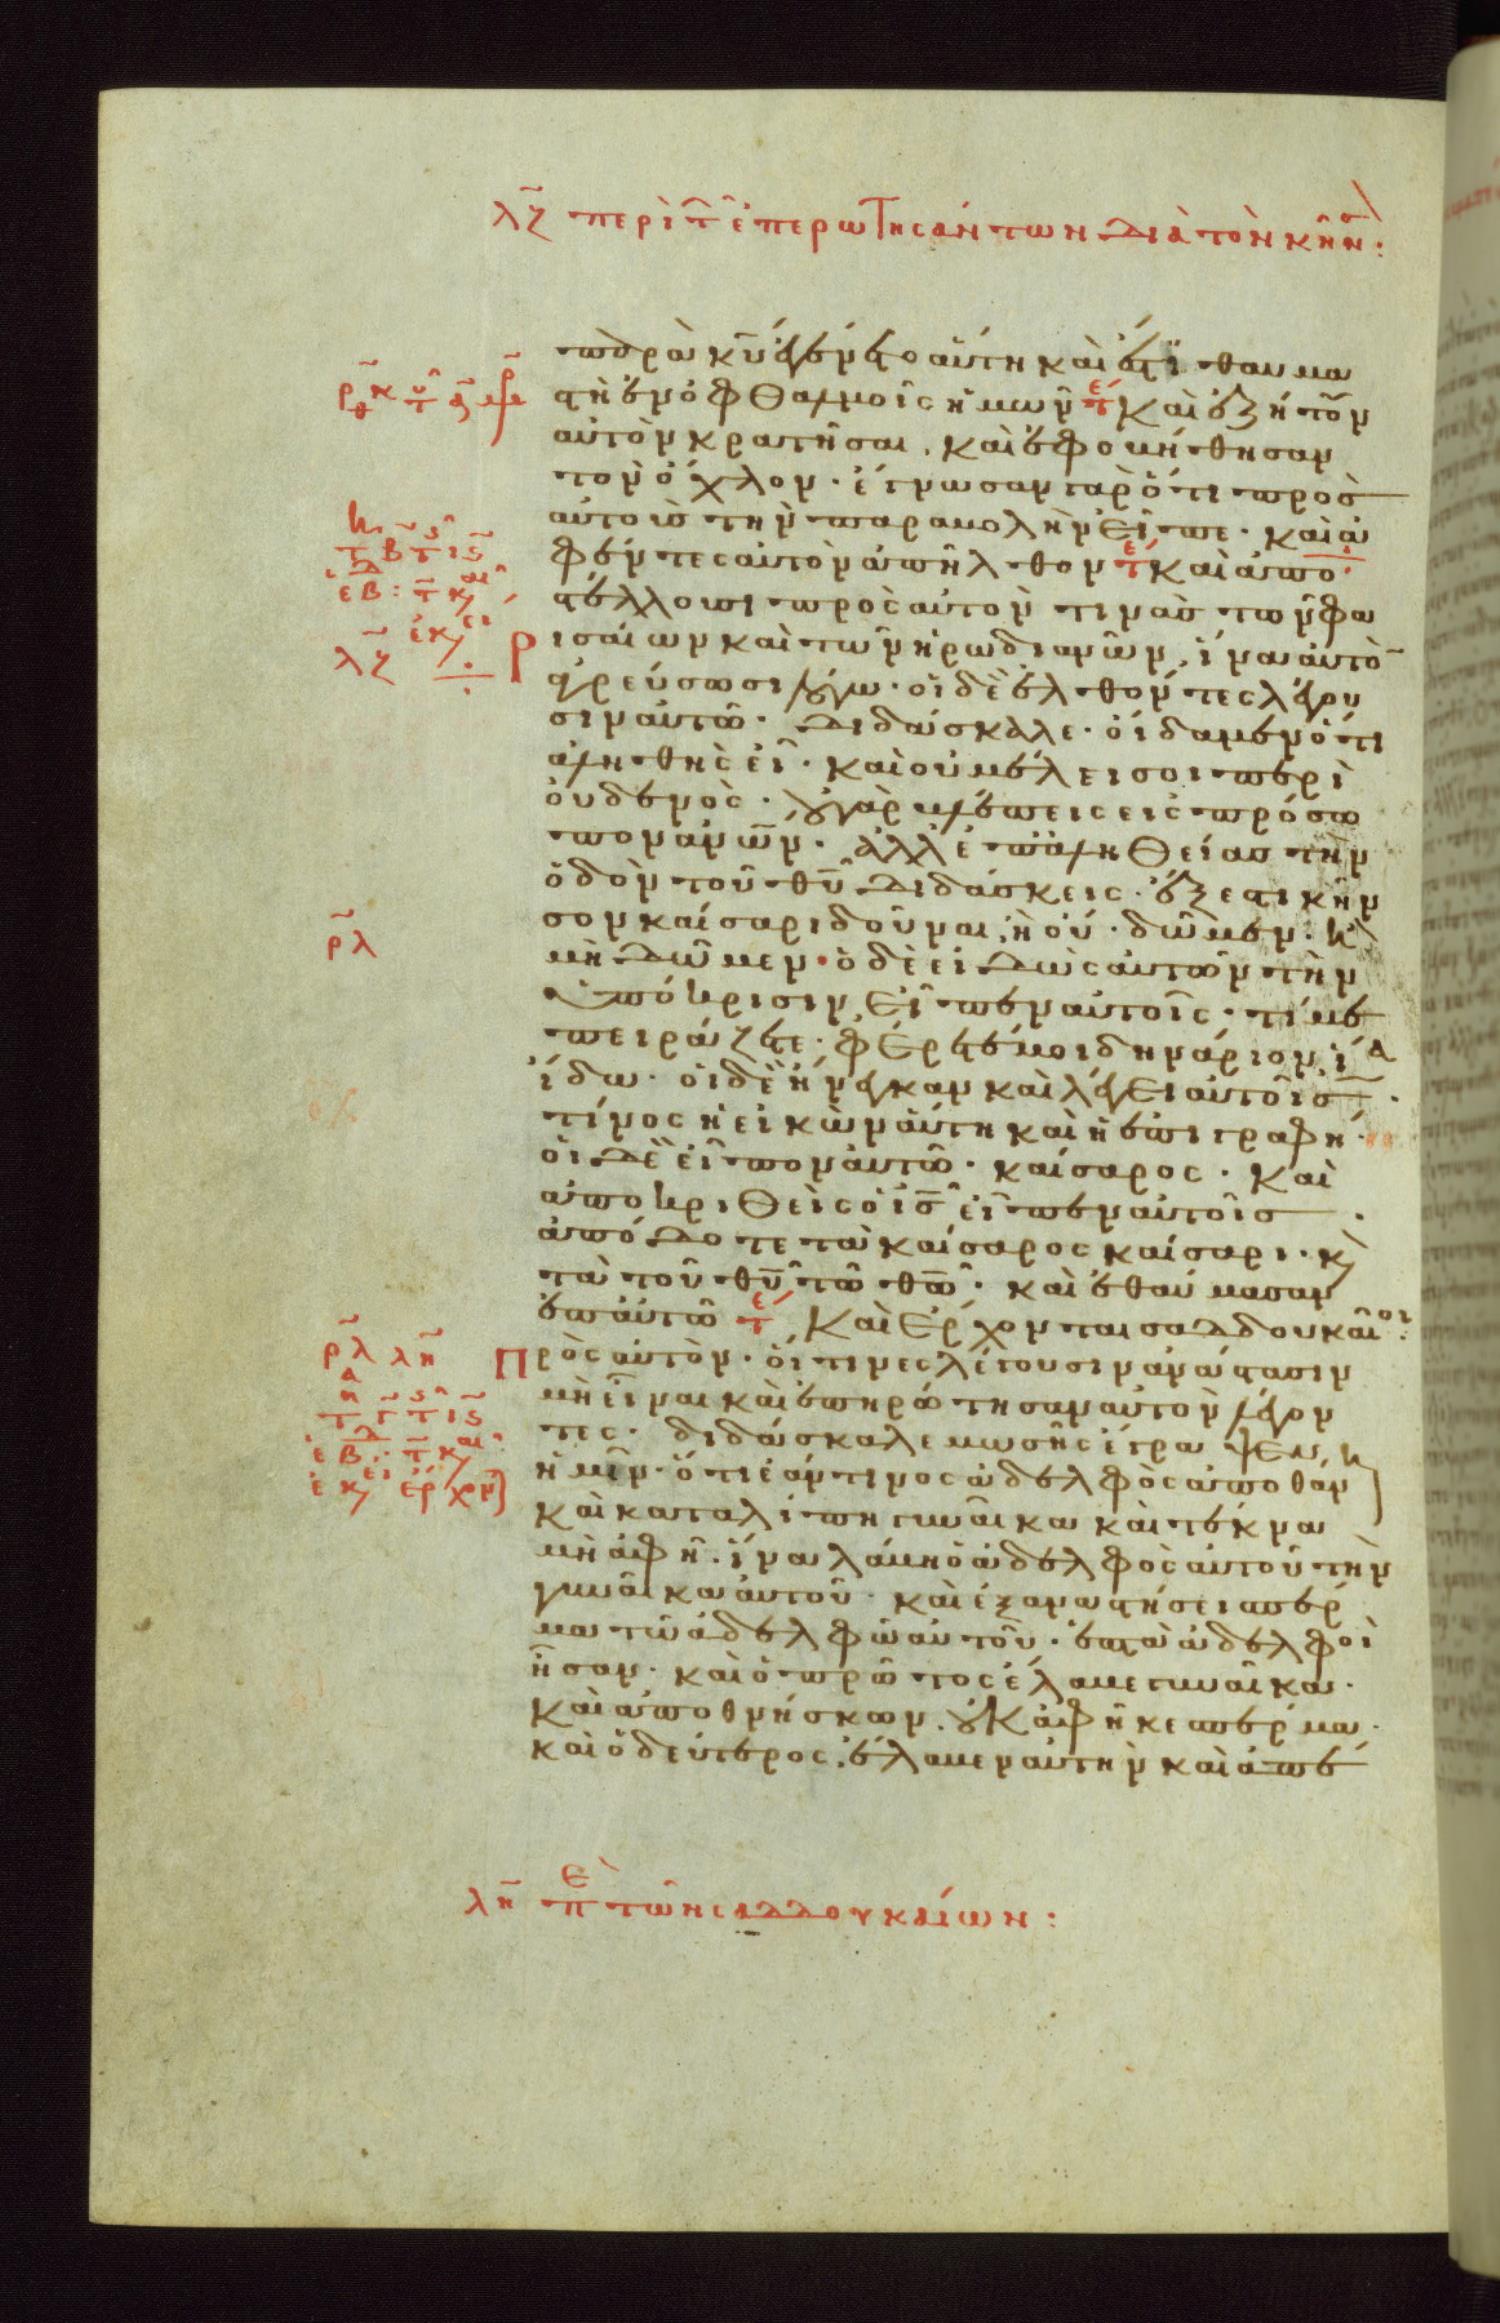 λζ περὶ τ ἐπερωτησάντων διὰ τὸν κῆνσ:
παρὰ κυ ἐγένετο αὕτη καὶ ἔστι θαυμα
στὴ ἐν ὀφθαλμοῖς ἡμῶν τε Καὶ ἐζήτουν
αὐτὸν κρατῆσαι, καὶ ἐφοβήθησαν
τὸν ὄχλον· ἔγνωσαν γὰρ ὅτι πρὸς
αὐτοὺς τὴν παραβολὴν εἶπε· καὶ ἀ
φέντες αὐτὸν ἀπῆλθον τε Καὶ ἀπο
στέλλουσι πρὸς αὐτόν τινας τῶν φα
ρισαίων καὶ τῶν ἡρωδιανῶν, ἵνα αὐτὸ
ἀγρεύσωσι λόγω· οἱ δὲ ἐλθόντες λέγου
σιν αὐτῶ· διδάσκαλε· οἴδαμεν ὅτι
ἀληθὴς εἶ· καὶ οὐ μέλει σοι περὶ
οὐδενὸς· οὐ γὰρ βλέπεις εἰς πρόσω
πον ἀνων· ἀλλ ἐπ ἀληθείας τὴν
ὁδὸν τοῦ θυ διδάσκεις· ἔξεστι κῆν
σον καίσαρι δοῦναι, ἢ οὔ· δῶμεν· κ
μὴ δῶμεν· ὁ δὲ εἰδὼς αὐτῶν τὴν
ὑπόκρισιν, εἶπεν αὐτοῖς· τί με
πειράζετε· φέρετέ μοι δηνάριον, ἵνα
ἴδω· οἱ δὲ ἤνεγκαν καὶ λέγει αὐτοῖς·
τίνος ἡ εἰκὼν αὕτη καὶ ἡ ἐπιγραφή·
οἱ δὲ εἶπον αὐτῶ· καίσαρος· Καὶ
ἀποκριθεὶς ὁ ις εἶπεν αὐτοῖς·
ἀπόδοτε τὰ καίσαρος καίσαρι· κ
τὰ τοῦ θυ τῶ θω· καὶ ἐθαύμασαν
ἐπ αὐτῶ τε Καὶ ἔρχονται σαδδουκαῖοι:
Πρὸς αὐτόν· οἵτινες λέγουσιν ἀνάστασιν
μὴ εἶναι καὶ ἐπηρώτησαν αὐτὸν λέγον
τες· διδάσκαλε μωσῆς ἔγραψεν
ἡμῖν· ὅτι ἐάν τινος ἀδελφὸς ἀποθάνη
καὶ καταλίπη γυναῖκα καὶ τέκνα
μὴ ἀφῆ· ἵνα λάβη ὁ ἀδελφὸς αὐτοῦ τὴν
γυναῖκα αὐτοῦ· καὶ ἐξαναστήσει σπέρ
μα τῶ ἀδελφῶ αὐτοῦ· ἑπτὰ ἀδελφοὶ
ἦσαν· καὶ ὁ πρῶτος ἔλαβε γυναῖκα·
καὶ ἀποθνήσκων, οὐκ ἀφῆκε σπέρμα·
καὶ ὁ δεύτερος ἔλαβεν αὐτὴν καὶ ἀπέ
ρλ
ρλ λη
λη πε τῶν σαδδουκαίων: